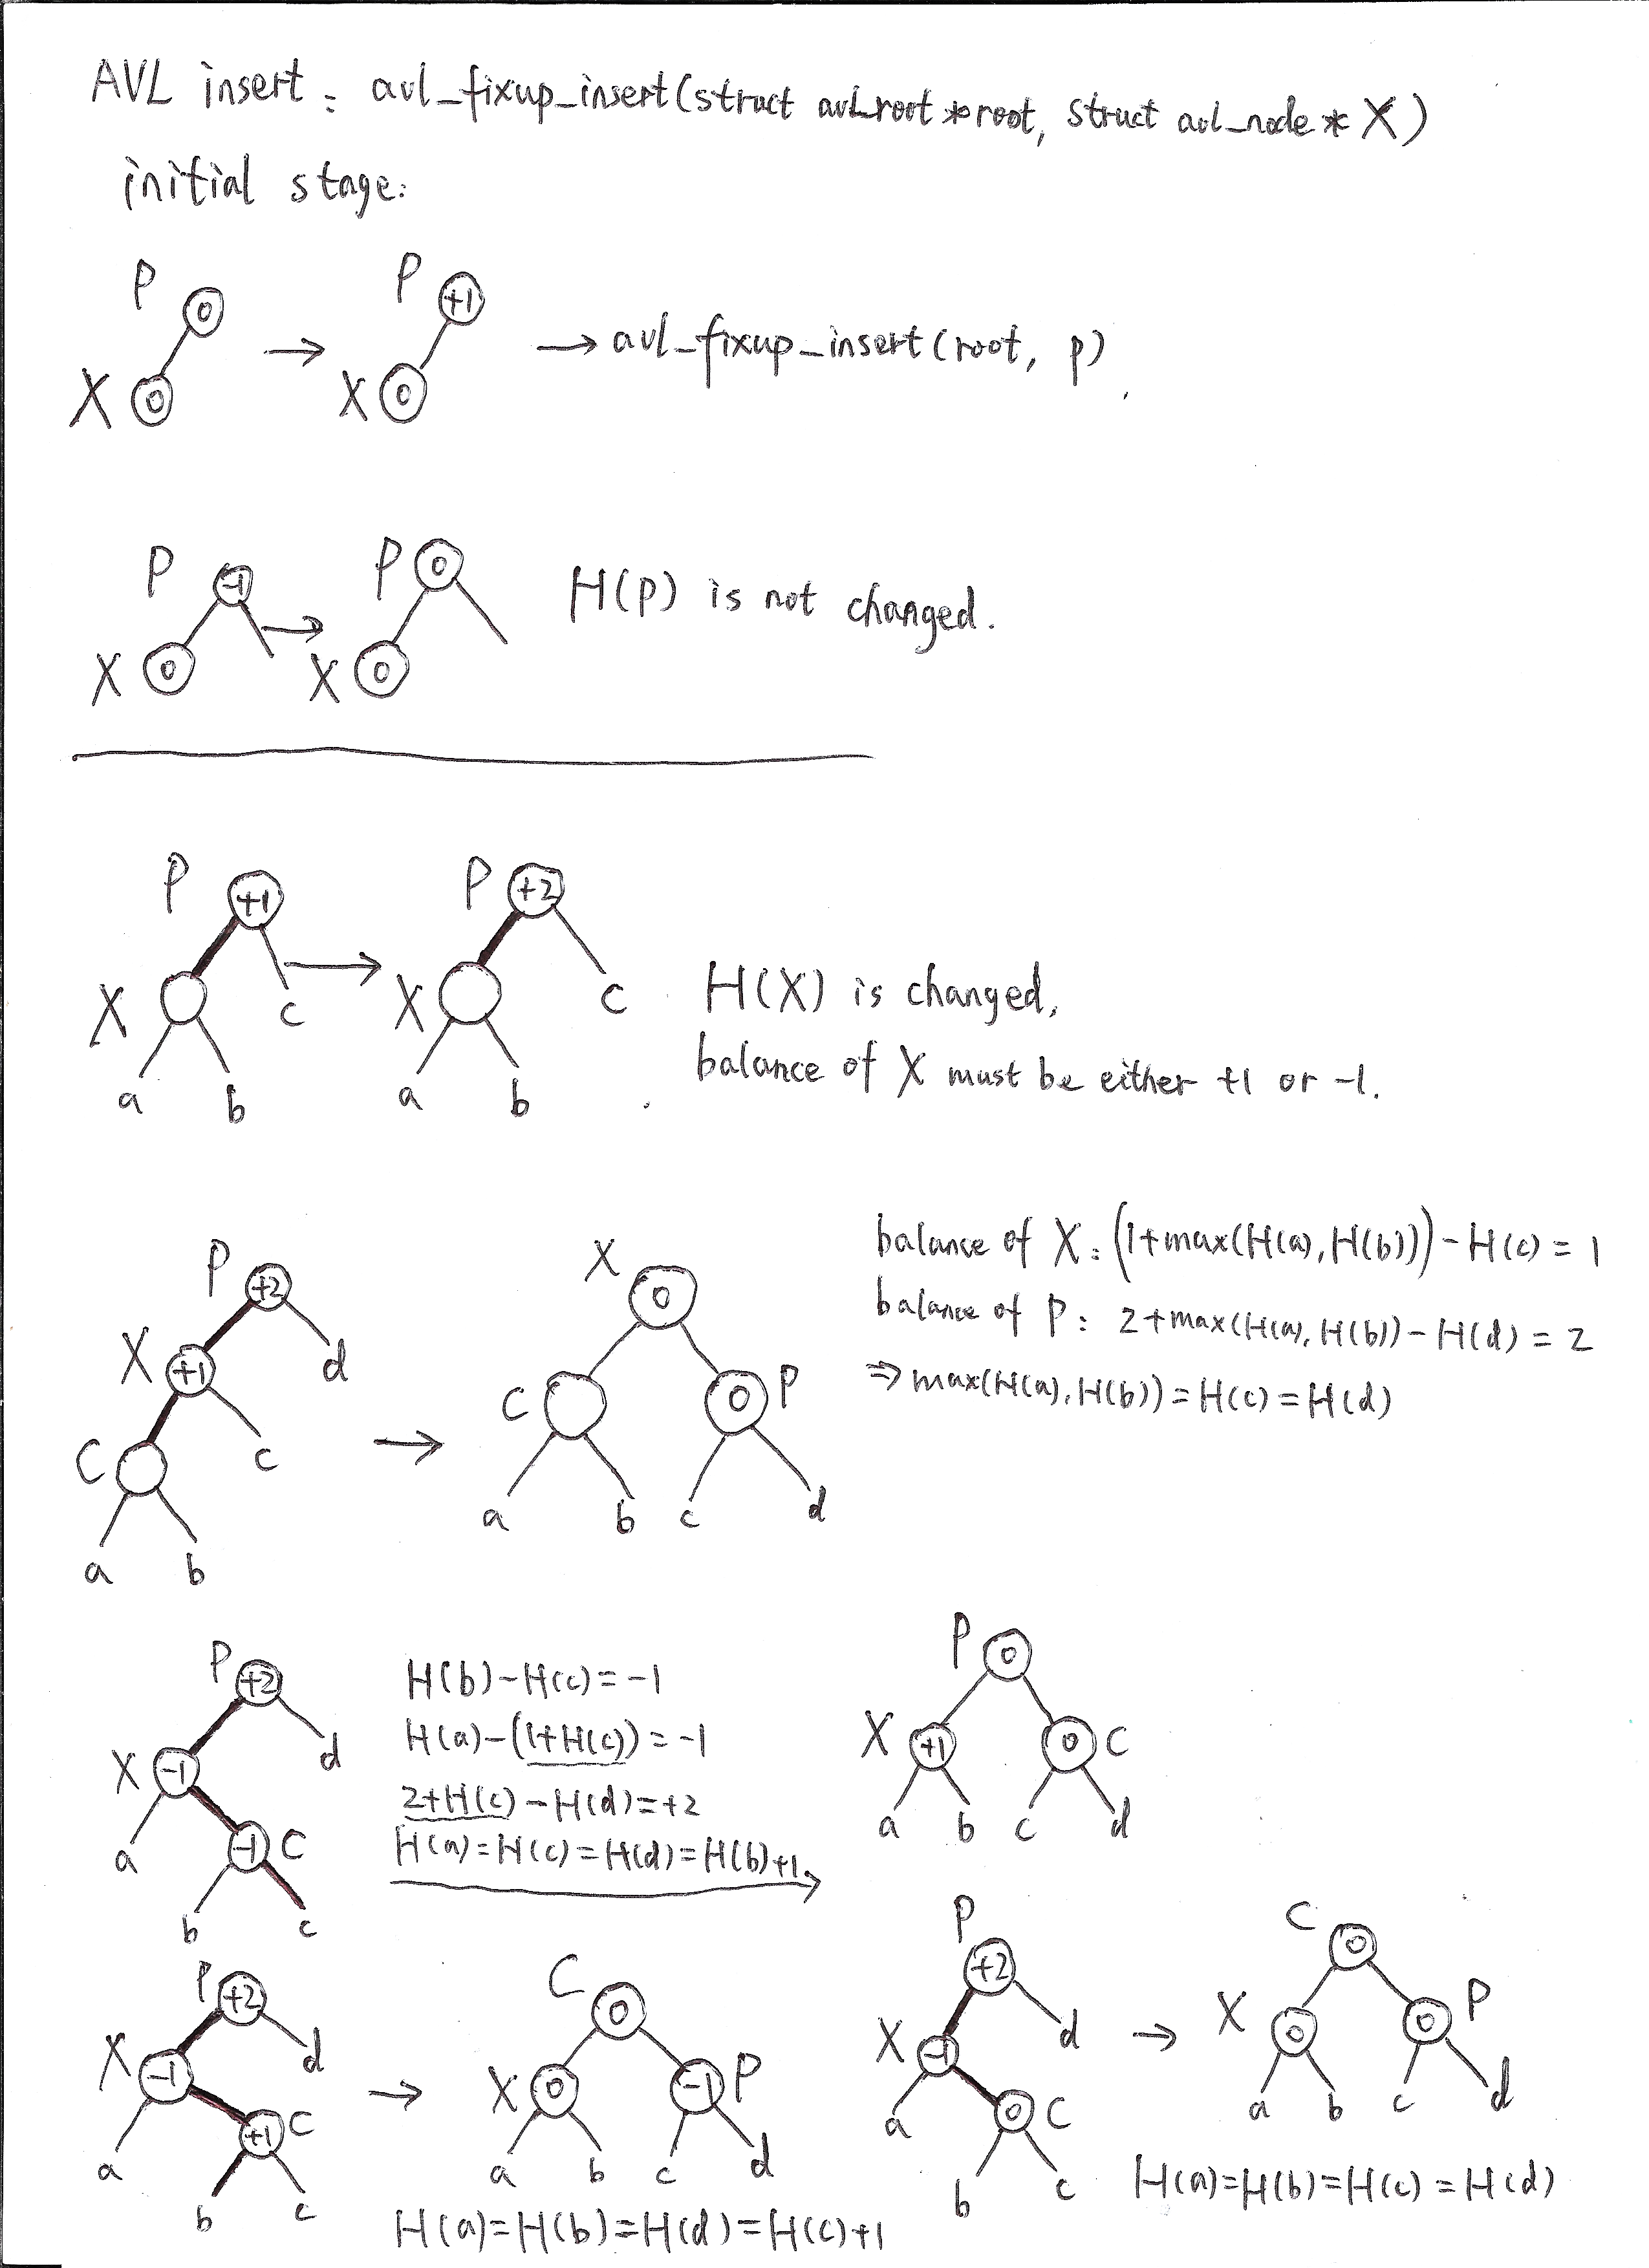 AVL insert: avl_fixup_insert(struct avl_root *root, struct avl_node * X)
initial stage:
P 0
X 0
→
P +1
X 0
→ avl_fixup_insert(root, p)
P -1
X 0
→
P 0
X 0
H(p) is not changed.
P +1
X c
a b
→
P +2
X c
a b
H(X) is changed,
balance of X must be either +1 or -1.
P +2
X +1 d
C c
a b
→
X 0
C 0 P
a b c d
balance of X: (1+max(H(a), H(b))) - H(c) = 1
balance of P: 2+max(H(a), H(b)) - H(d) = 2
⇒ max(H(a), H(b)) = H(c) = H(d)
P +2
X -1 d
a -1 C
b c
H(b)-H(c)=-1
H(a)-(1+H(c))=-1
2+H(c)-H(d)=+2
H(a)=H(c)=H(d)=H(b)+1
→
P 0
X +1 0 C
a b c d
P +2
X -1 d
a +1 C
b c
→
C 0
X 0 -1 P
a b c d
H(a)=H(b)=H(d)=H(c)+1
P +2
X -1 d
a 0 C
b c
→
C 0
X 0 0 P
a b c d
H(a)=H(b)=H(c)=H(d)